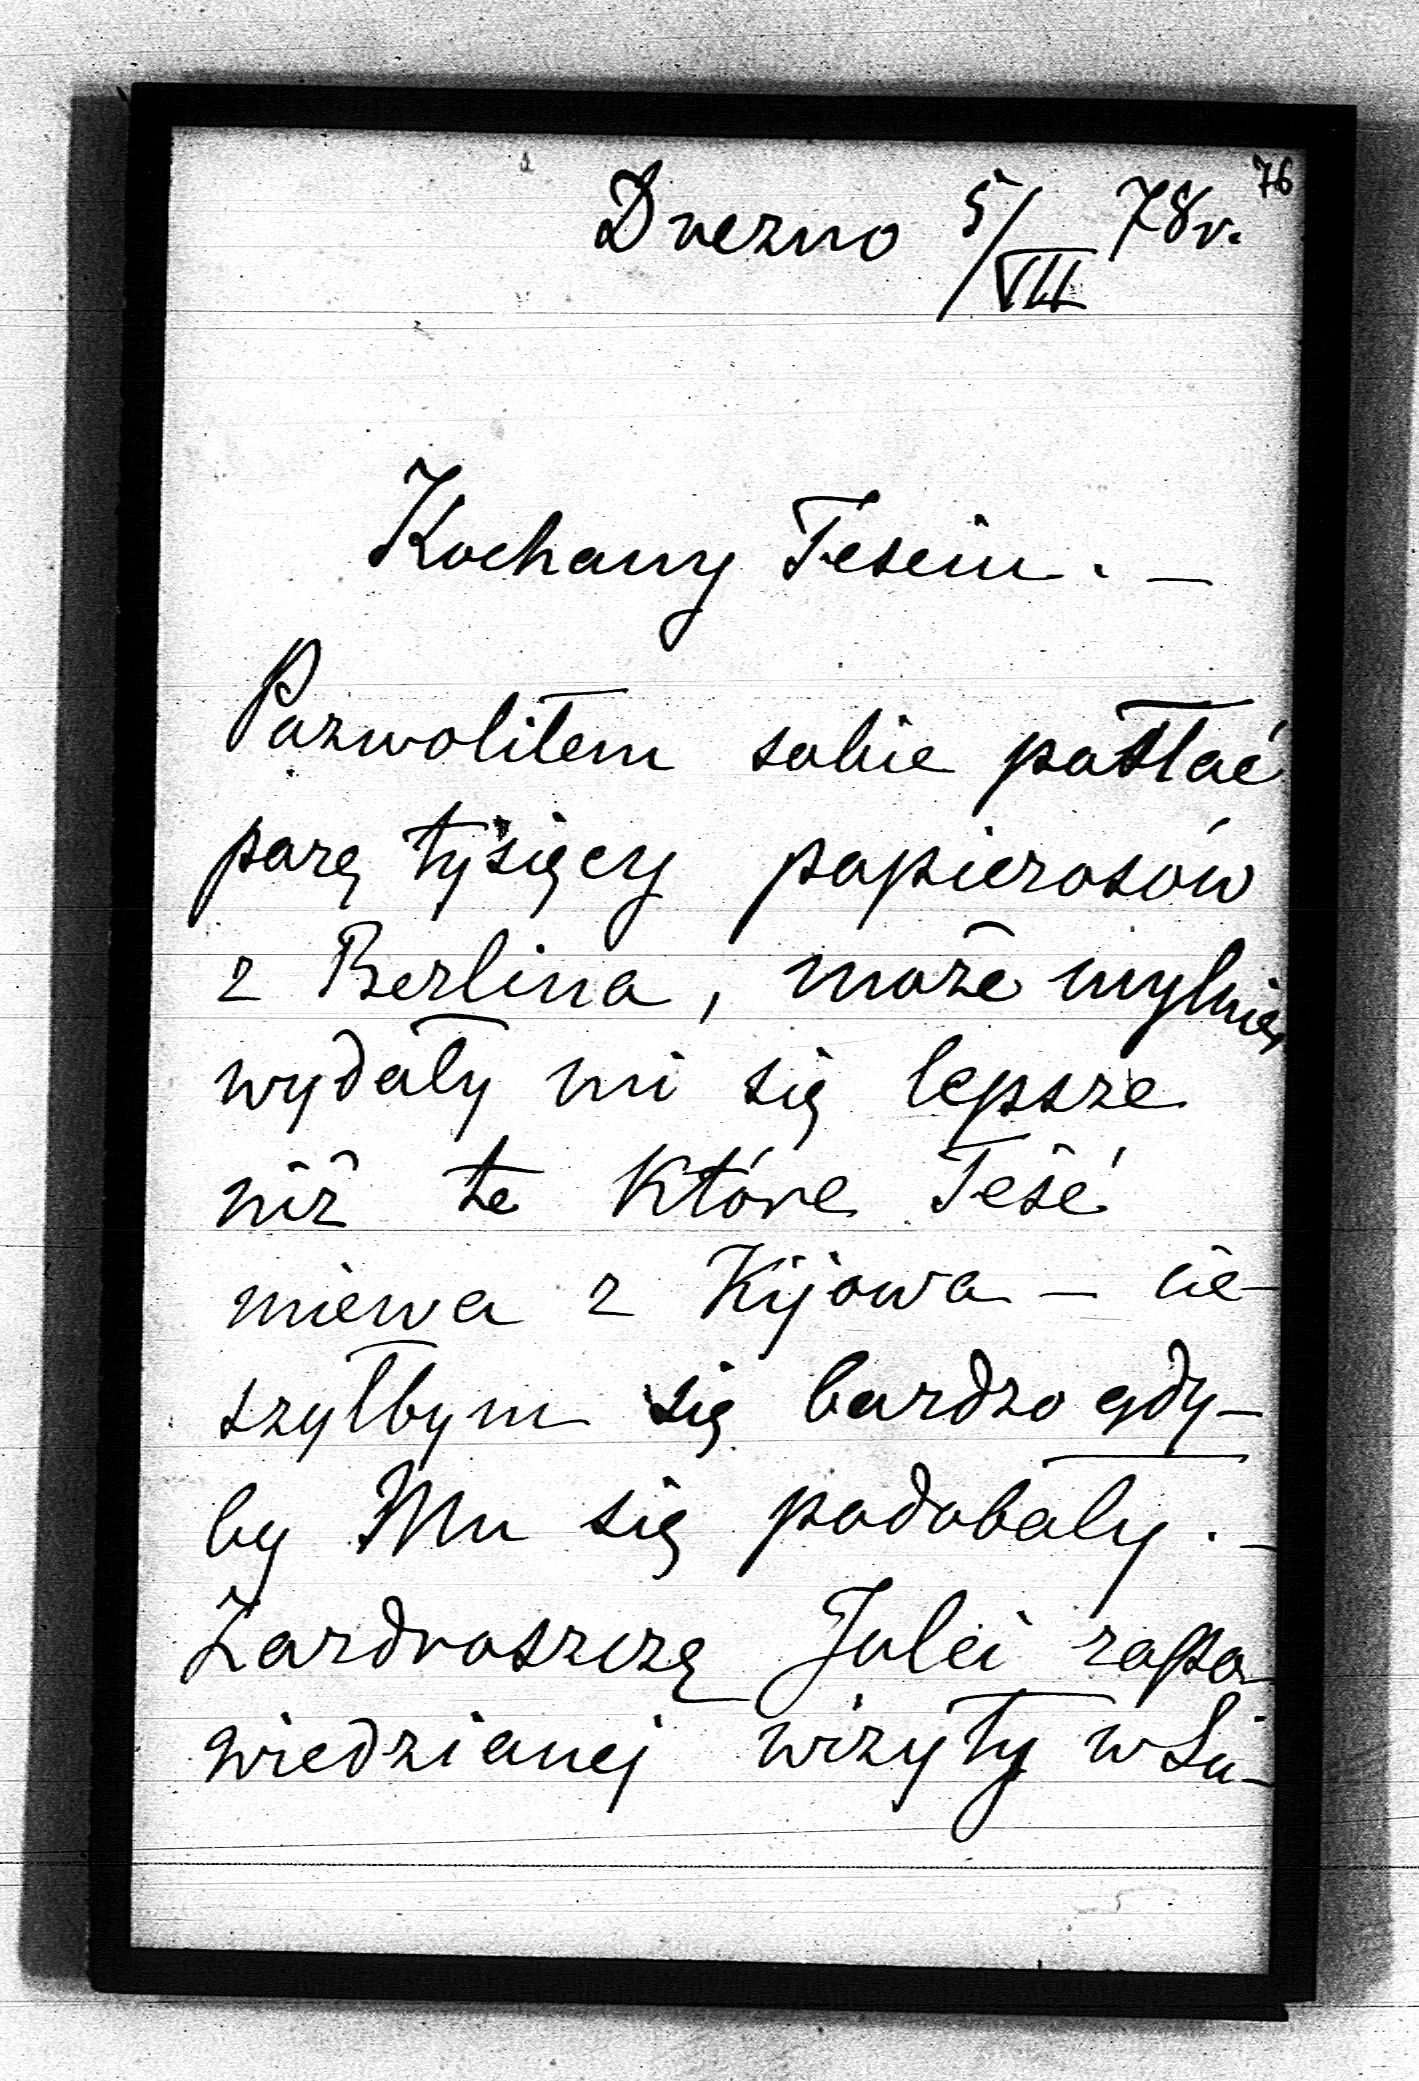 76
Drezno 5/VII 78 r.
Kochany Teściu. —
Pozwoliłem sobie posłać
parę tysięcy papierosów
z Berlina, może mylnie,
wydały mi się lepsze
niż te które Teść
miewa z Kijowa — cie-
szyłbym się bardzo gdy-
by Mu się podobały. —
Zazdroszczę Julci zapo-
wiedzianej wizyty w Su-